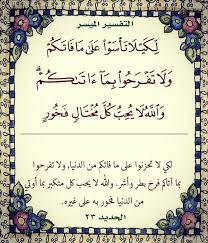 التفسير الميسر
لِكَيْلَا تَأْسَوْا عَلَىٰ مَا فَاتَكُمْ
وَلَا تَفْرَحُوا بِمَا ءَاتَىٰكُمْ ۗ
وَاللَّهُ لَا يُحِبُّ كُلَّ مُخْتَالٍ فَخُورٍ
لكي لا تحزنوا على ما فاتكم من الدنيا, ولا تفرحوا
بما آتاكم فرح بطر وأشر. والله لا يحب كل متكبر بما أوتي
من الدنيا فخور به على غيره.
الحديد ٢٣